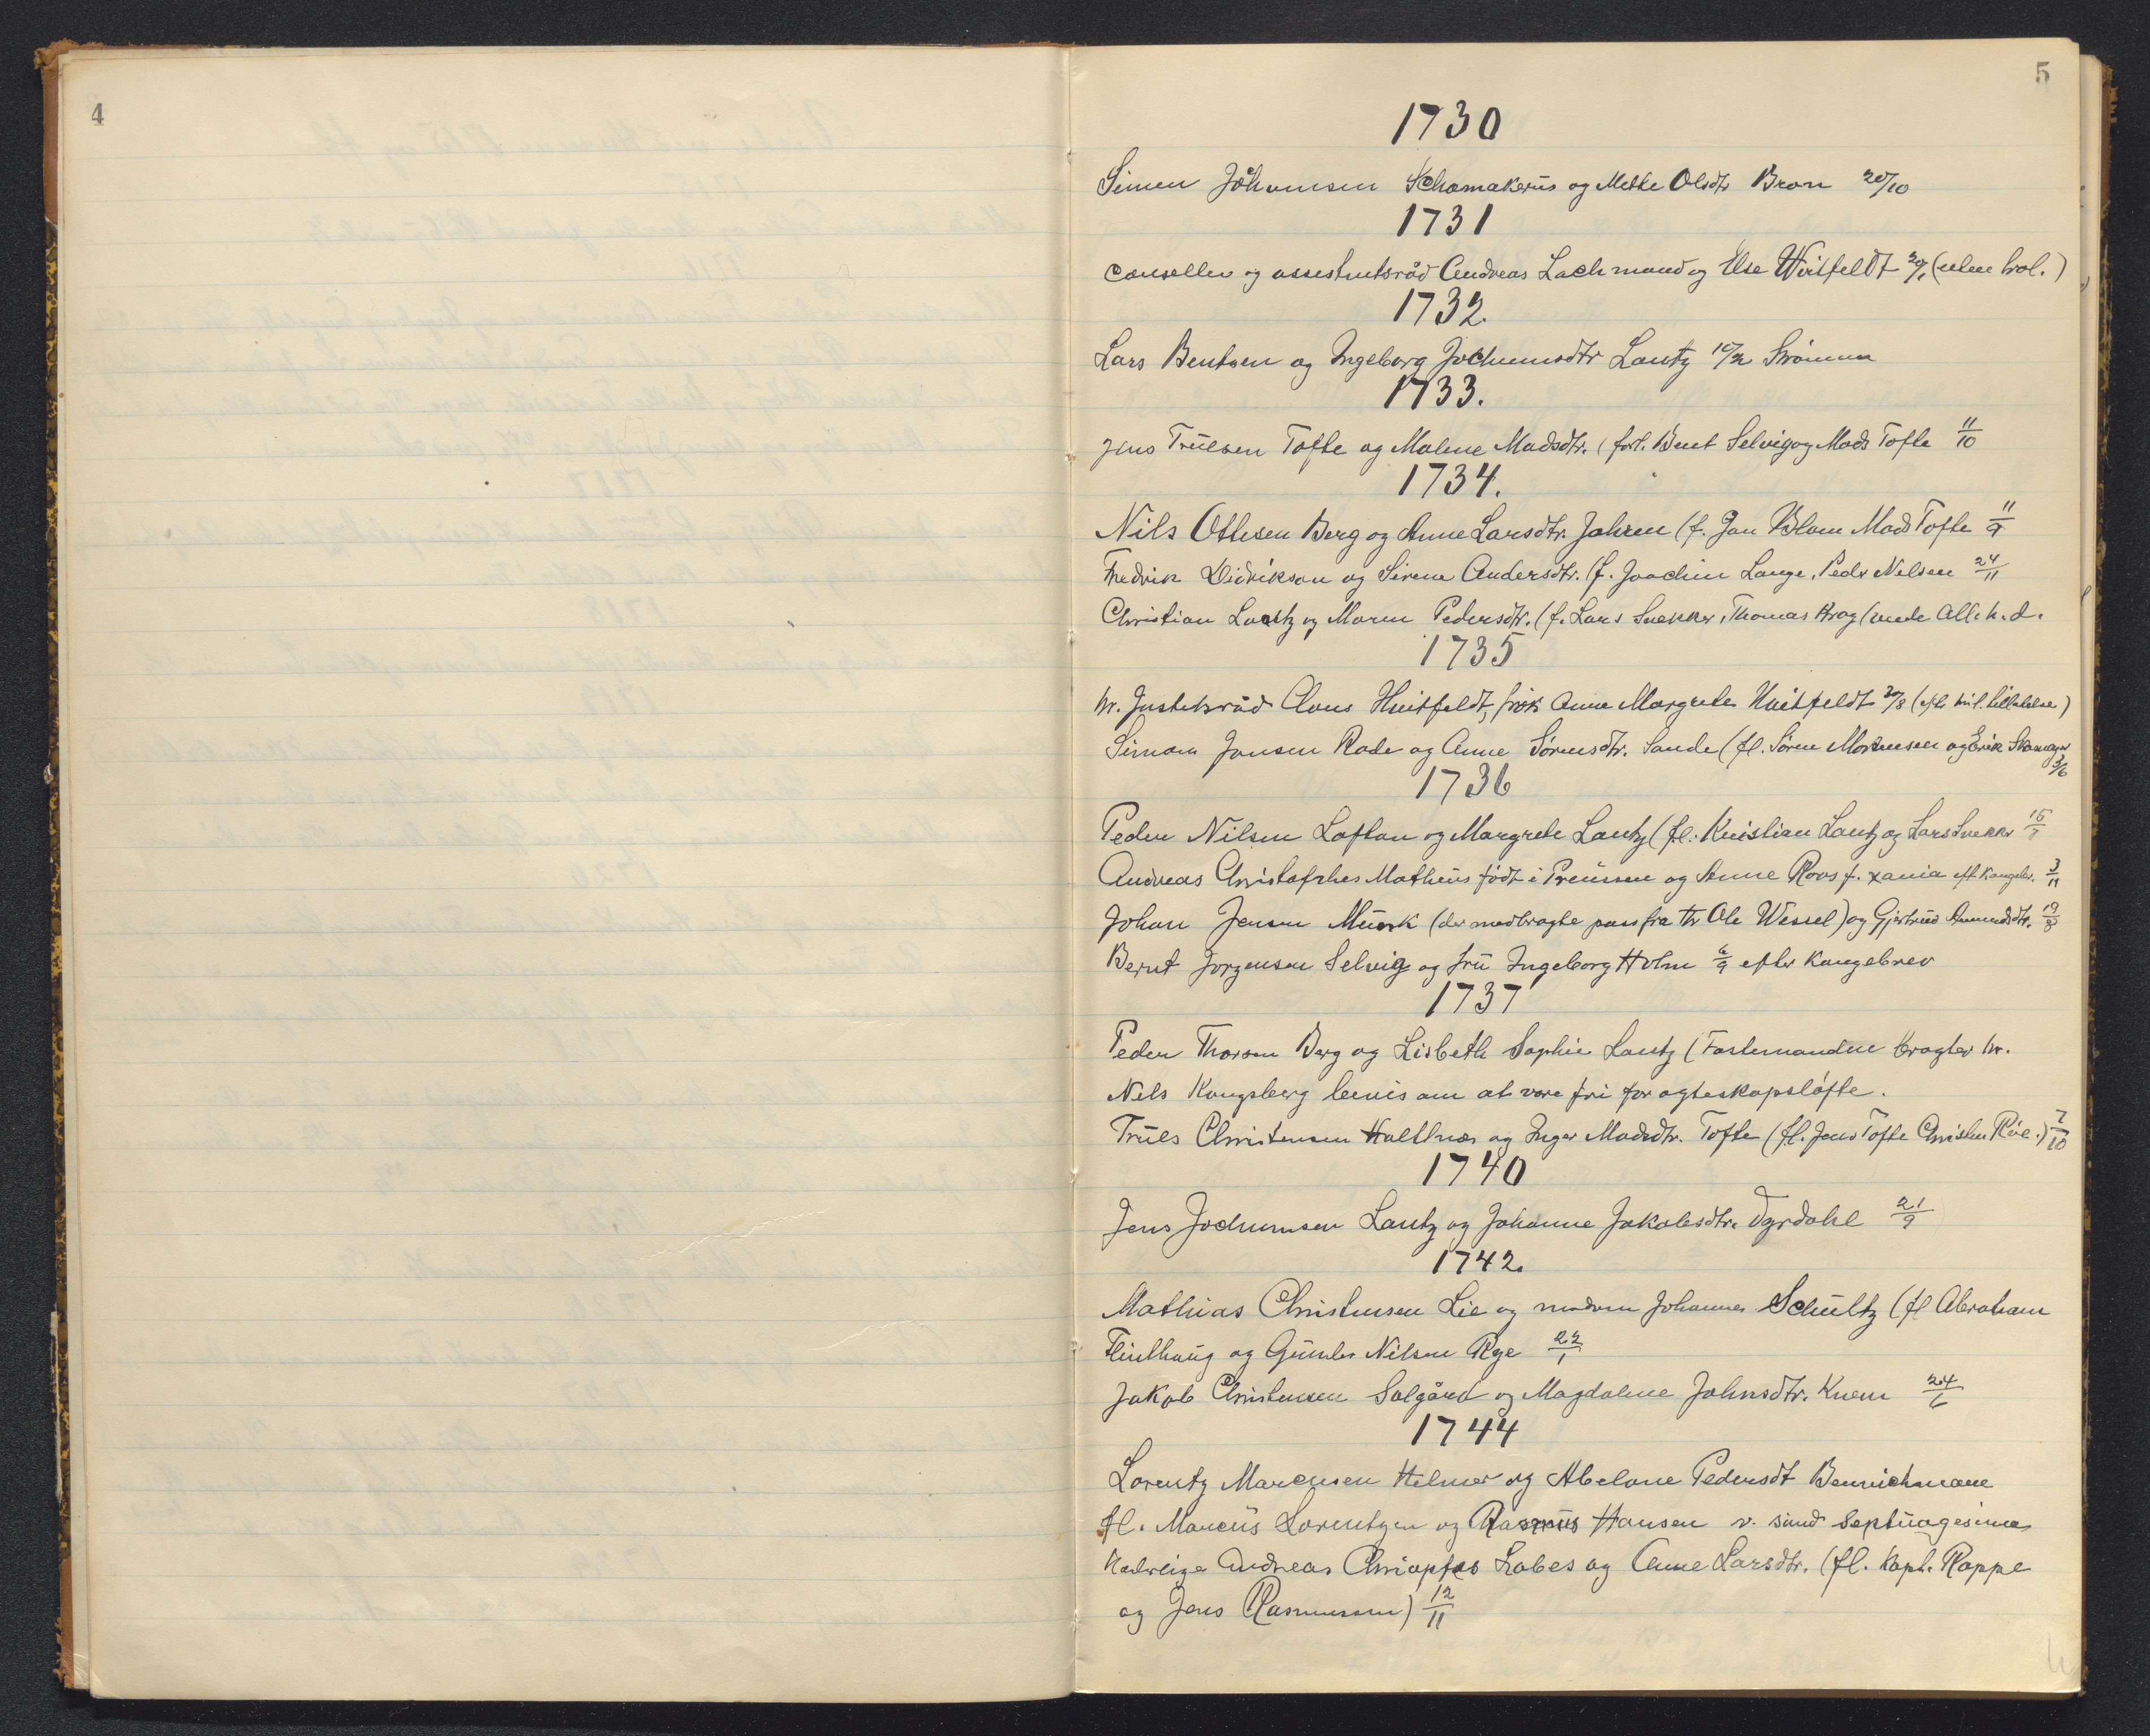 4
5
1730
Simen Johannsen Schomakerüs og Mette Olsdtr Bron 20/10
1731
og assestentsråd Andreas Lachmand og Else Witfeldt 20/1 (uten trol.)
1732.
Lars Bentsen og Ingeborg Jochumsdtr Lantz 10/2 Strömm
1733.
Jens Trulsen Tofte og Malene Madsdtr. (forl. Bent Selvig og Mads Tofte 11/10
1734.
Nils Othesen Berg og Anne Larsdtr. Jahren (f. Jan Blom Mads Tofte 11/9
Fredrik Didrikson og Sirene Andersdtr. (f. Joachim Lange, Peder Nelsen 24/11
Christian Lantz og Maren Pedersdtr. (f. Lars Snekker, Thomas Krog
1735
hr. Justetsråd Claus Huitfeldt, frøk Anne Margrete Huitfeldt 30/8
Simom Jonsen Rode og Anne Sörensdtr. Sande (fl. Sören Mortensen og Erik Skomager 3/6
1736
Peder Nilsen Loftan og Margrete Lantz (fl. Kristian Lantz og Lars Snekker 15/7
Andreas Christofrhes Matheüs födt i Preüssen og Anne Roos f. xania eft. kongebr. 3/11
Johan Jensen Münk (der medbragte pass fra Hr Ole Wessel) og Gjertrud Amundsdtr. 19/8
Bernt Jorgensen Selvig og frü Ingeborg Holm 6/9 efter kongebrev
1737
Peder Thorsen Berg og Lisbeth Sophie Lantz (Fastemanden bragter hr.
Nels Kongsberg bevis om at vore fri for agteskapslöfte.
Trüls Christensen Holtnæs og Inger Madsdtr. Tofte (fl. Jens Tofte Christen Röe.) 7/10
1740
Jens Jochumsen Lantz og Johanne Jakobsdtr. Dyrdahl 21/9
1742.
Mathias Christensen Lie og madam Johanne Schultz (fl Abraham
Flinthaug og Günder Nilsen Rye 22/1
Jakob Christensen Solgård og Magdalene Johnsdtr. Knem 24/6
1744
Lorentz Marcusen Hilmer og Abelone Pedersdt
fl. Marcüs Lorentzen og Rasmus Hansen v. sünd Septüagesima
Andreas Labes og Anne Larsdtr. (fl. kapt. Rappe
og Jens Rasmussen) 12/11